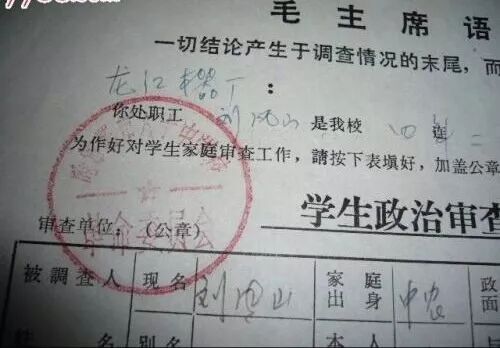 毛主席语
一切结论产生于调查情况的末尾，而
龙江 厂：
你处职工 刘凤山 是我校 四连 二
为作好对学生家庭审查工作，請按下表填好，加盖公章
革命委员会
学生政治审查
审查单位：（公章）
被調查人 現名 刘凤山 家庭出身 中农 政面
姓名 别名 本人